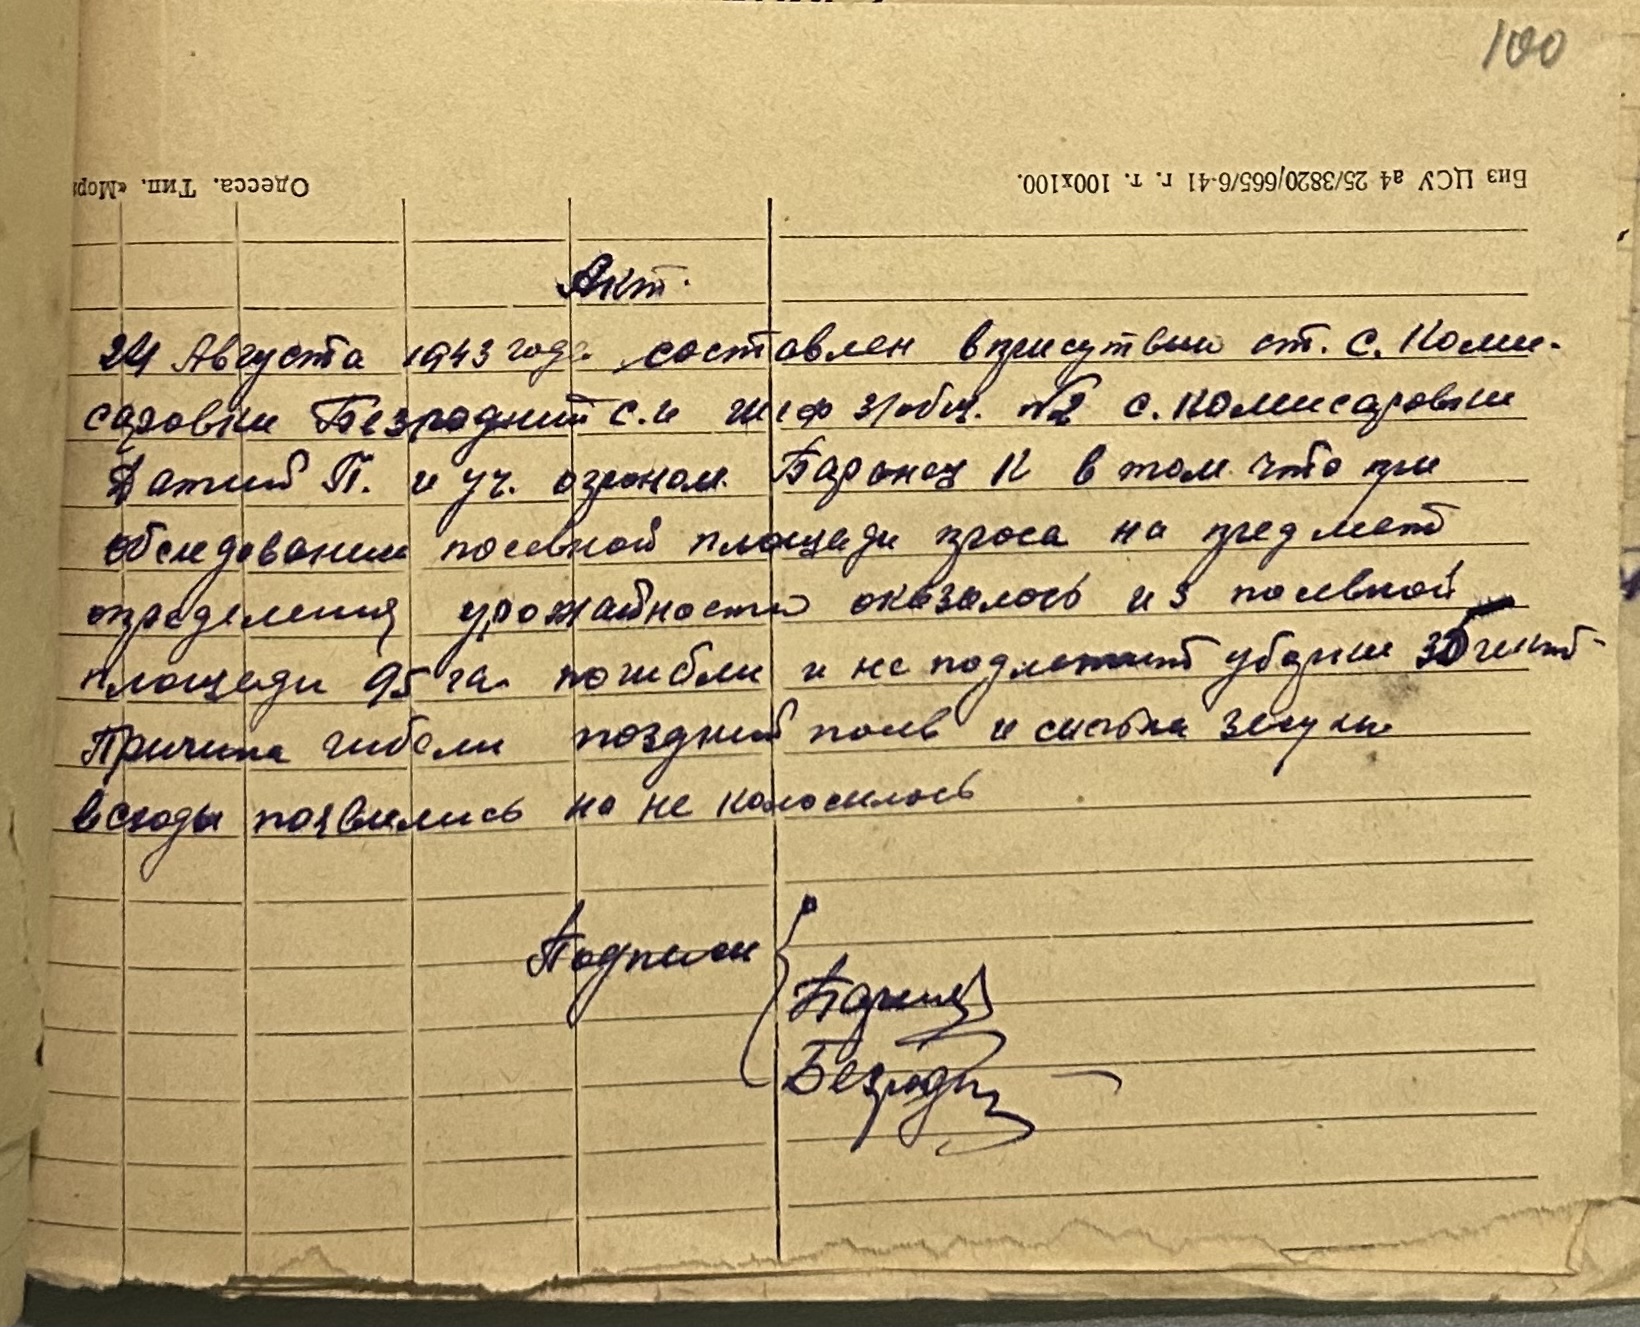 100
Виз ЦСУ а4 25/3820/665/6-41 г. т. 100х100.
Одесса. Тип. «Мор
Акт.
24 Августа 1943 года составлен вприсутвии ст. с. Коми-
саровки Безродний С.И шеф з/общ. №2 с. Комисаровки
Датий П. и уч. огроном. Баранец К в том что при
обследовании посевной площади проса на предмет
определения урожайности оказалось из посевной
площади 95 га. погибли и не подлежит уборки 35
Причина гибели поздний посев и сильна
всходы появились но не колосилось
Подписи
Баранец
Безродн